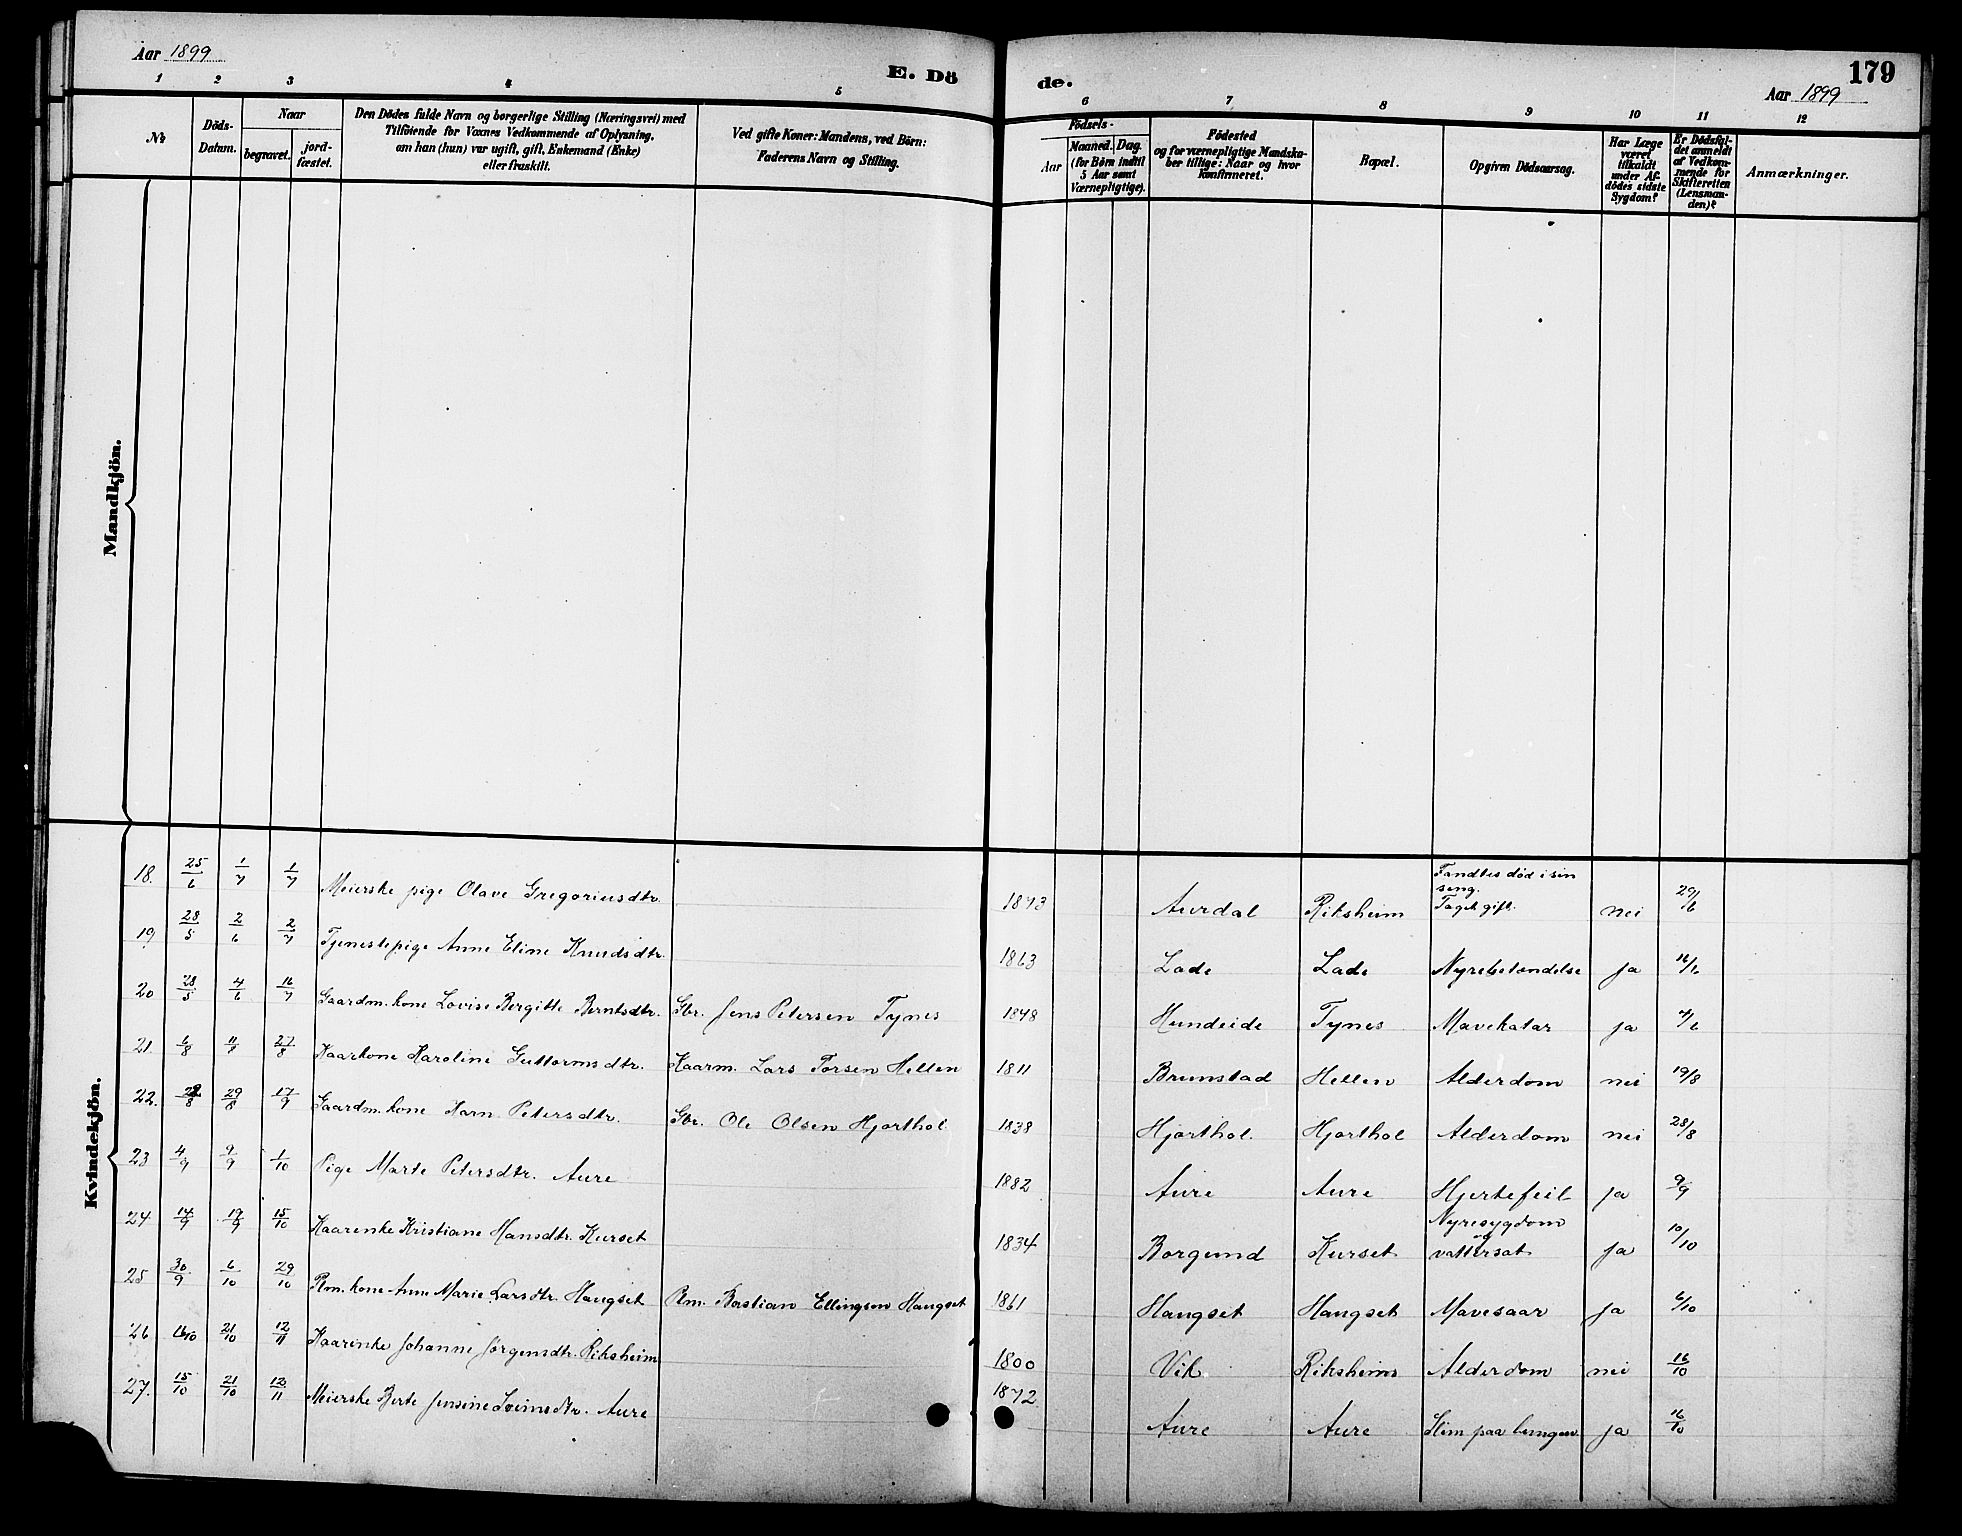 Aar 1899
E. Dö
de.
179
Aar 1899
1 2 3 4 5 6 7 8 9 10 11 12
No
Döds-
Datum.
Naar
begravet.
jord-
fæstet.
Den Dödes fulde Navn og borgerlige Stilling (Næringsvei) med
Tilföiende for Voxnes Vedkommende af Oplysning,
om han (hun) var ugift, gift, Enkemand (Enke)
eller fraskilt.
Ved gifte Koner: Mandens, ved Börn:
Faderens Navn og Stilling.
Födsels-
Aar
Maaned. Dag.
(for Börn indtil
5 Aar samt
Værnepligtige).
Födested
og for værnepligtige Mandska-
ber tillige: Naar og hvor
konfirmeret.
Bopæl.
Opgiven Dödsaarsag.
Har Læge
været
tilkaldt
under Af-
dödes sidste
Sygdom?
Er Dödsfal-
det anmeldt
af Vedkom-
mende for
Skifteretten
(Lensman-
den)?
Anmærkninger.
Mandkjön.
Kvindekjön.
18. 25/6 1/7 1/7 Meierske pige Olave Gregoriusdtr. 1873 Aurdal Riksheim Fandtes død i sin
seng.
Taget gift. nei 29/6
19 28/5 2/6 2/7 Tjenestepige Anne Eline Knudsdtr. 1863 Lade Lade Nyrebetændelse ja
20 28/5 4/6 16/7 Gaardm. kone Lovise Bergitte Berntsdtr. Gbr. Jens Petersen Tynes 1848 Hundeide Tynes Mavekatar ja
21. 6/8 27/8 Kaarkone Karoline Guttormsdtr. Kaarm. Lars Torsen Hellen 1811 Brunstad Hellen Alderdom nei 19/8
22. 29/8 17/9 Gaardm. kone Karn Petersdtr. Gbr. Ole Olsen Hjorthol 1838 Hjorthol. Hjorthol Alderdom nei 28/8
23 4/9 9/9 1/10 Pige Marte Petersdtr. Aure 1882 Aure Aure Hjertefeil ja 9/9
24 14/9 19/9 15/10 Kaarenke Kristiane Hansdtr. Kurset 1834 Borgund Kurset Nyresygdom
og
vattersot ja 10/10
25 30/9 6/10 29/10 Plm. kone Anne Marie Larsdtr. Haugset Plm. Bastian Ellingsen Haugset 1861 Haugset Haugset Mavesaar ja 6/10
26 21/10 12/11 Kaarenke Johanne Jørgensdtr. Riksheim 1800 Vik Riksheim Alderdom nei 16/10
27. 15/10 21/10 12/11 Meierske Berte Jensine Sveinsdtr. Aure 1872 Aure Aure Slim paa lungen ja 16/10